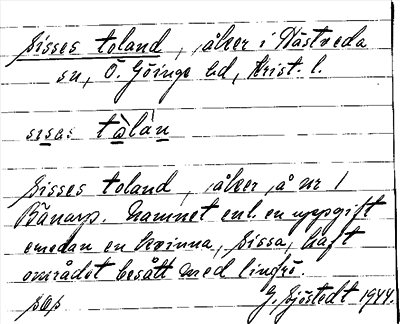 Sisses toland, åker i Nästveda
sn, Ö. Göinge hd, Krist. l.
sɪsəs tàlán
Sisses toland, åker å nr 1
Bänarp. Namnet enl. en uppgift
emedan en kvinna, Sissa, haft
området besått med linfrö.
G. Sjöstedt 1944.